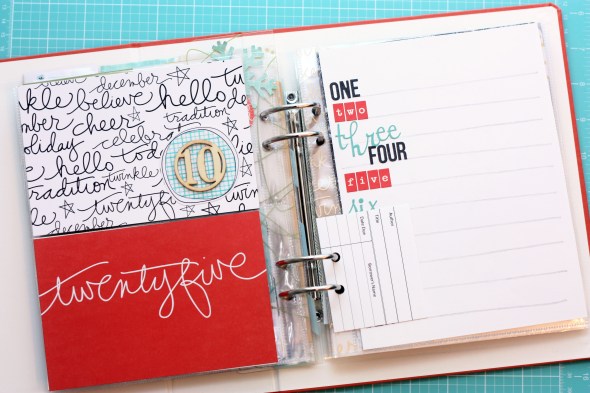 december twi
inkle believe hello
ember cheer tradition
holiday celebr
hello tod
tradition twinkle
twentyfive
10
twentyfive
ONE
two
three
FOUR
five
six
Author
Title
Date Due
Borrower's Name